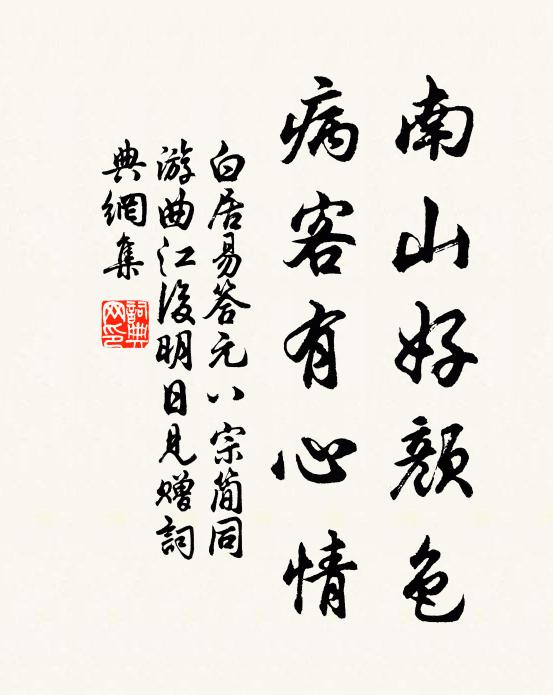 南山好顏色
病客有心情
白居易答元八宗簡同
游曲江後明日見贈詞
典網集
詞典
网印